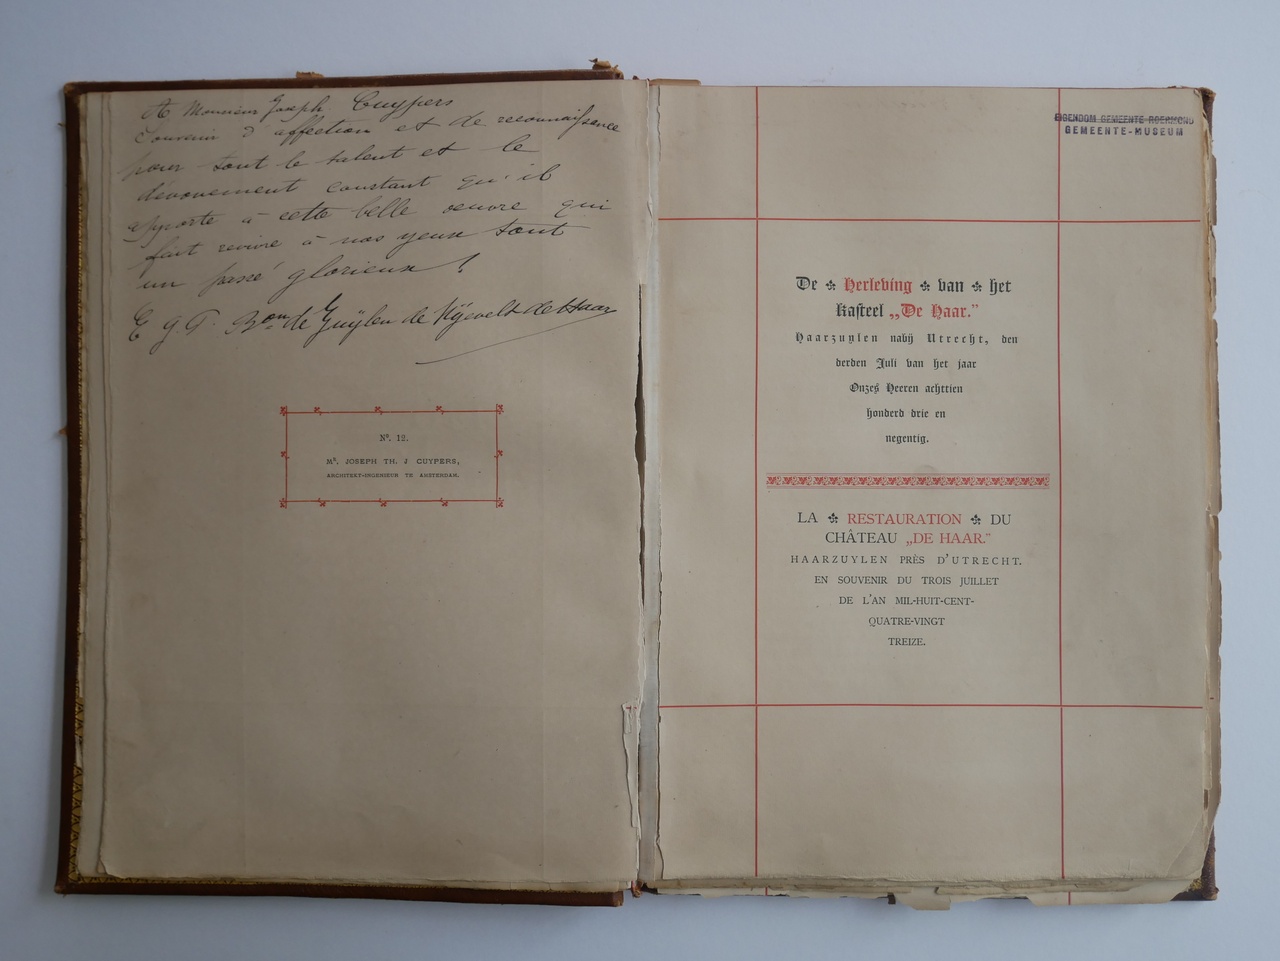 A Monsieur Joseph Cuypers
Souvenir d'affection et de reconnaissance
pour tout le talent et le
dévouement constant qu'il
apporte à cette belle oeuvre qui
fait revivre à nos yeux tout
un passé glorieux !
E G. F. Bon de Zuÿlen de Nÿevelt de Haar
No. 12.
Mr. JOSEPH TH. J CUYPERS,
ARCHITEKT-INGENIEUR TE AMSTERDAM.
EIGENDOM GEMEENTE ROERMOND
GEMEENTE-MUSEUM
De Herleving van het
kasteel „De Haar."
Haarzuylen nabij Utrecht, den
derden Juli van het jaar
Onzes Heeren achttien
honderd drie en
negentig.
LA RESTAURATION DU
CHÂTEAU „DE HAAR."
HAARZUYLEN PRÈS D'UTRECHT.
EN SOUVENIR DU TROIS JUILLET
DE L'AN MIL-HUIT-CENT-
QUATRE-VINGT
TREIZE.